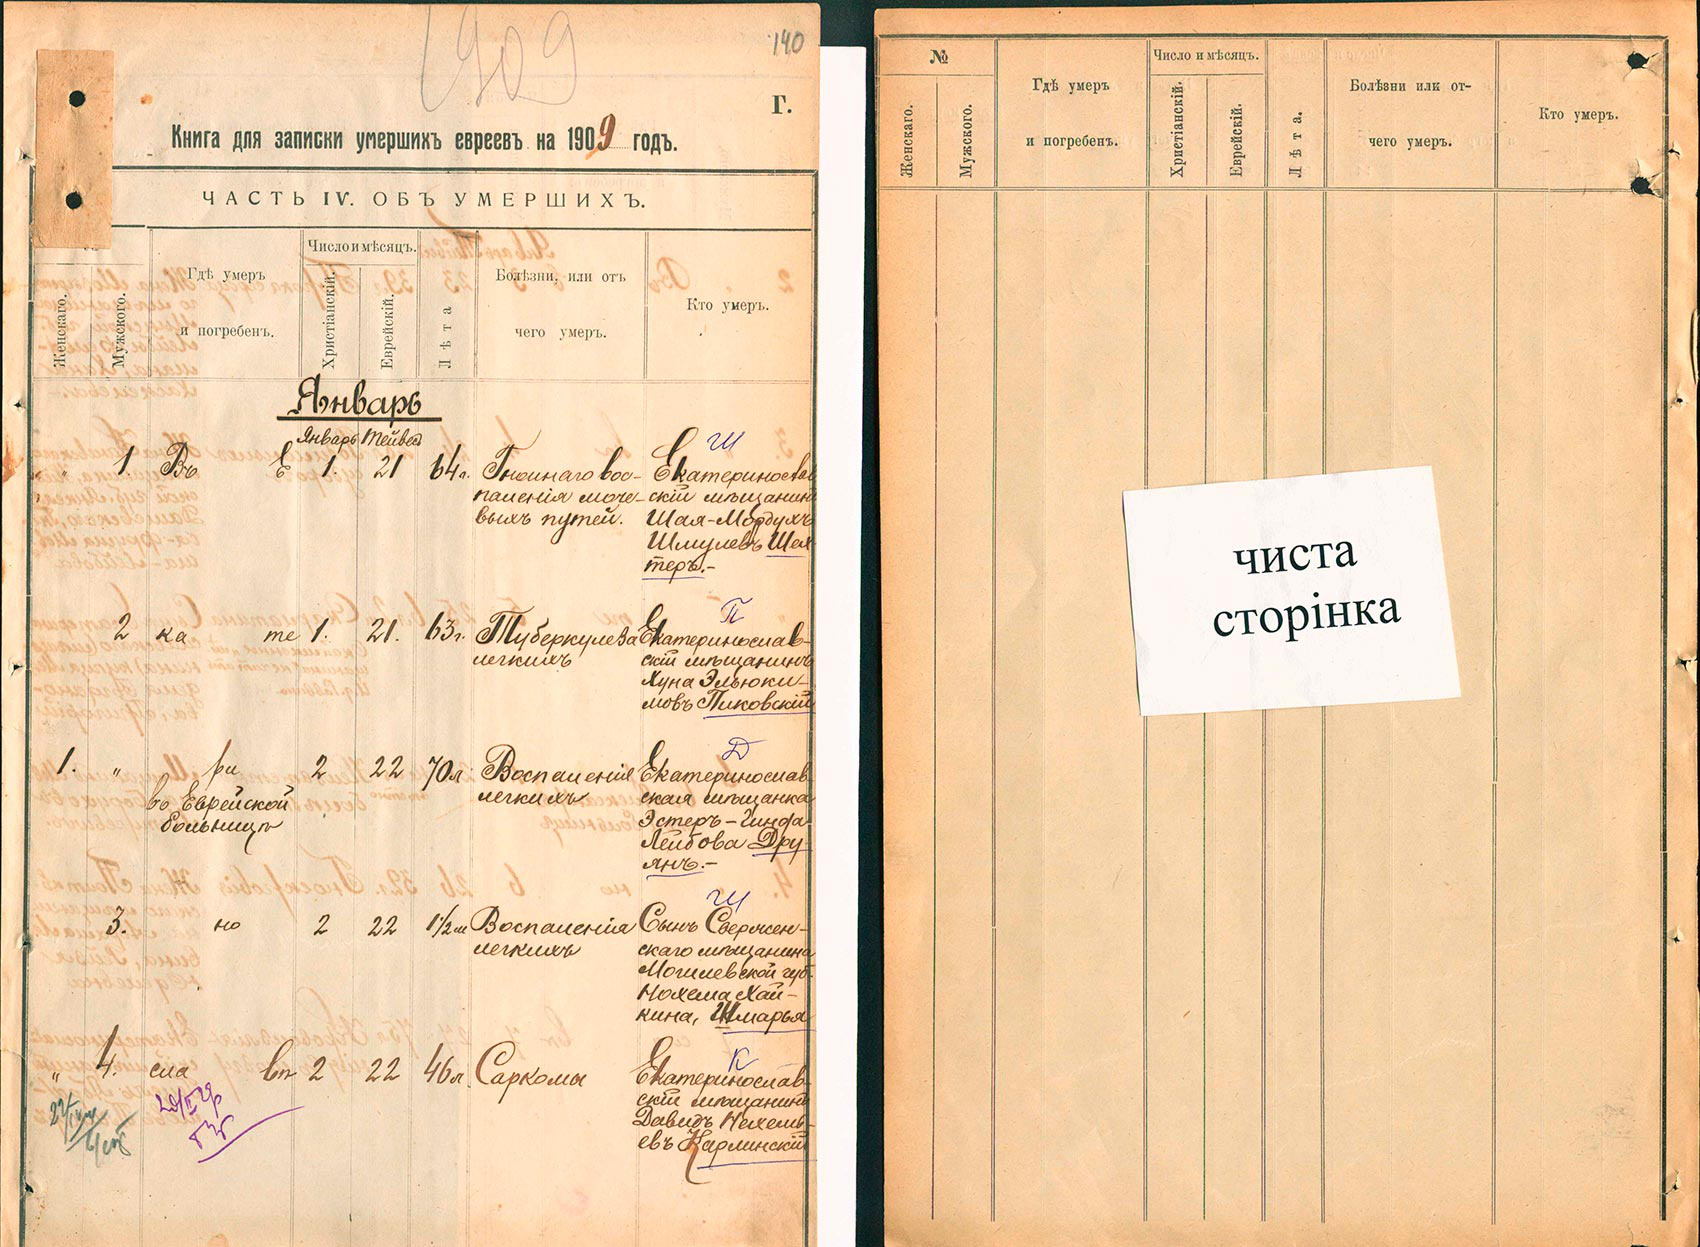 1909
140
Г.
Книга для записки умершихъ евреевъ на 1909 годъ.
ЧАСТЬ IV. ОБЪ УМЕРШИХЪ.
Женскаго.
Мужского.
Гдѣ умеръ
и погребенъ.
Число и мѣсяцъ.
Христіанскій.
Еврейскій.
Лѣта
Болѣзни, или отъ
чего умеръ.
Кто умеръ.
Январь
Январь Тейвес
" 1. Въ Е 1. 21 64 л. Гнойнаго вос-
паленія моче-
выхъ путей.
Ш
Екатеринослав
скій мѣщанинъ
Шая-Мордухъ
Шмулевъ Шех
теръ.-
2 ка те 1. 21. 63 г. Туберкулеза
легкихъ
П
Екатеринослав-
скій мѣщанинъ
Хуна Эльюки-
мовъ Пиковскій
1. " ри 2 22 70 л. Воспаленія
легкихъ
во Еврейской
больницѣ
Д
Екатеринослав
ская мѣщанка
Эстеръ-Гинда
Лейбова Дру-
янъ.-
3. но 2 22 1½ м Воспаленія
легкихъ
Ш
Сынъ Свержен-
скаго мѣщанина
Могилевской губ.
Нохема Хай-
кина, Шмарья
" 4. сла вѣ 2 22 46 л. Саркомы
К
Екатеринослав-
скій мѣщанинъ
Давидъ Нехемь-
евъ Карлинскій
№
Женскаго.
Мужского.
Гдѣ умеръ
и погребенъ.
Число и мѣсяцъ.
Христіанскій.
Еврейскій.
Лѣта.
Болѣзни или от-
чего умеръ.
Кто умеръ.
чиста
сторінка